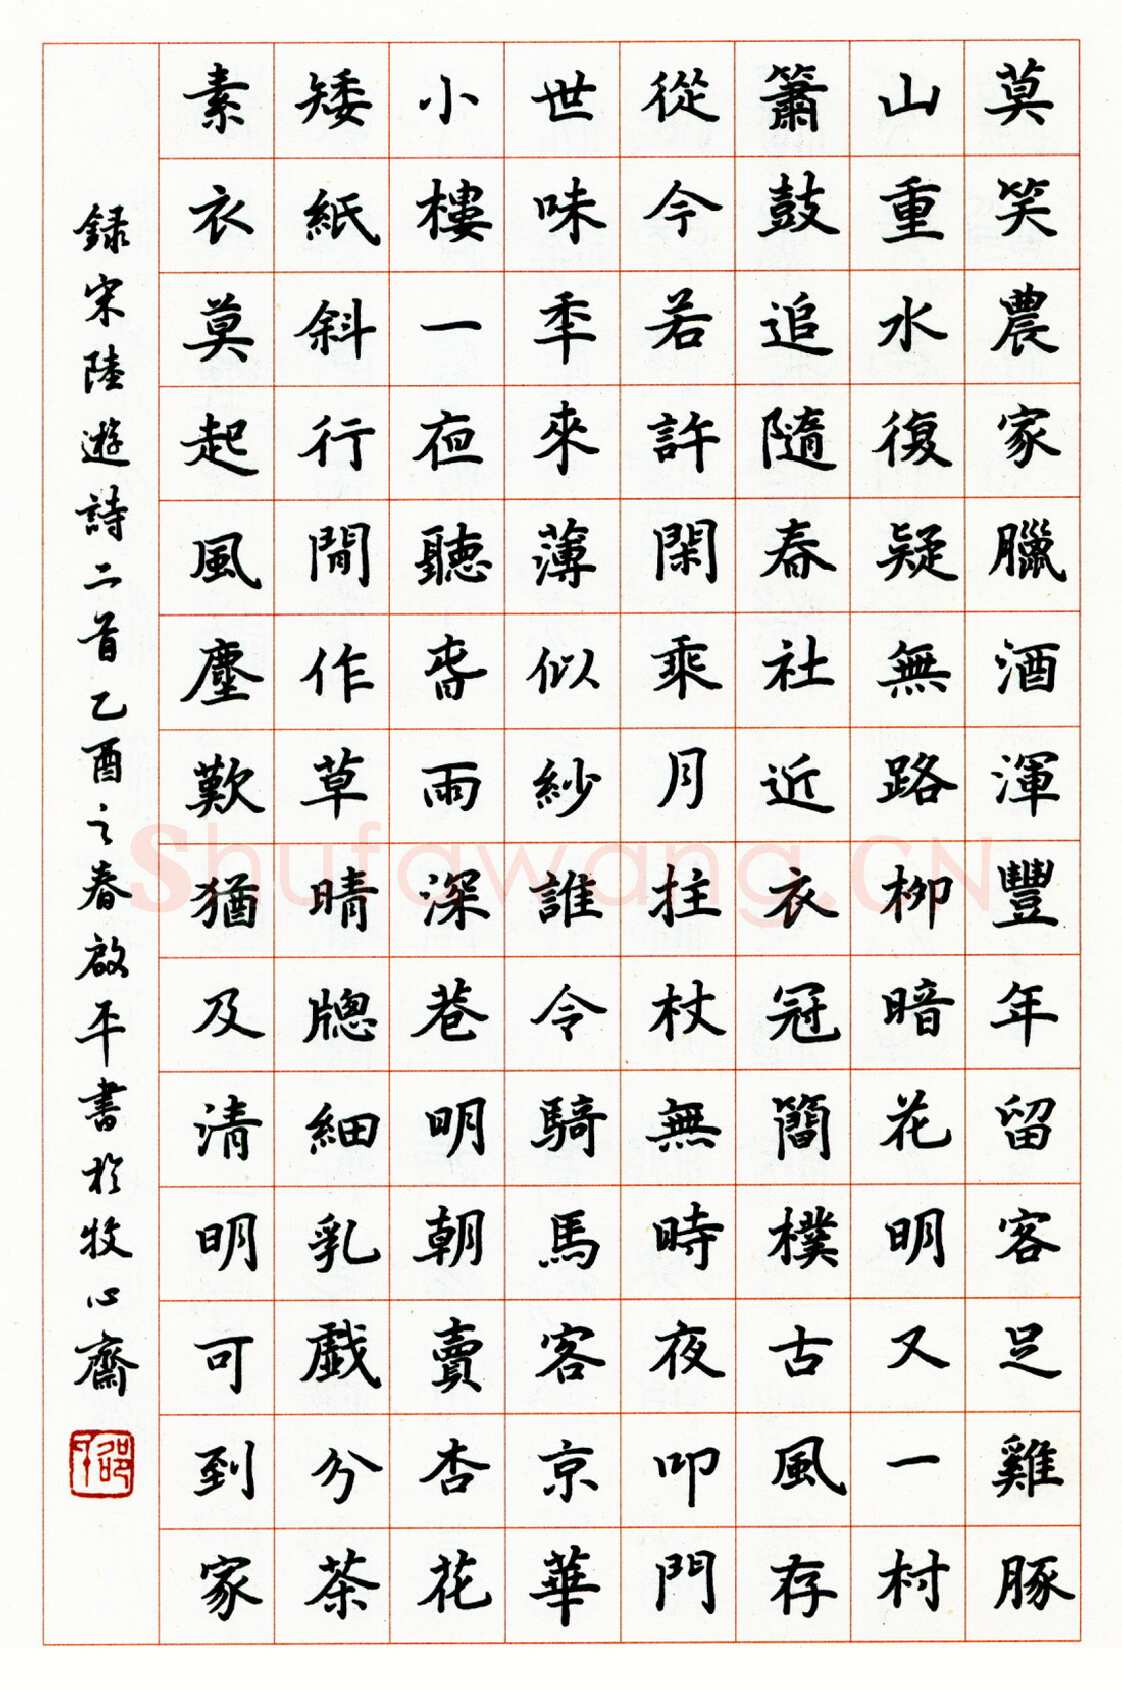 莫笑農家臘酒渾豐年留客足雞豚
山重水復疑無路柳暗花明又一村
簫鼓追隨春社近衣冠簡樸古風存
從今若許閑乘月拄杖無時夜叩門
世味秊來薄似紗誰令騎馬客京華
小樓一夜聽春雨深巷明朝賣杏花
矮紙斜行閒作草晴牕細乳戲分茶
素衣莫起風塵歎猶及清明可到家
録宋陸遊詩二首乙酉之春啟平書於牧心齋
Shufawang.CN